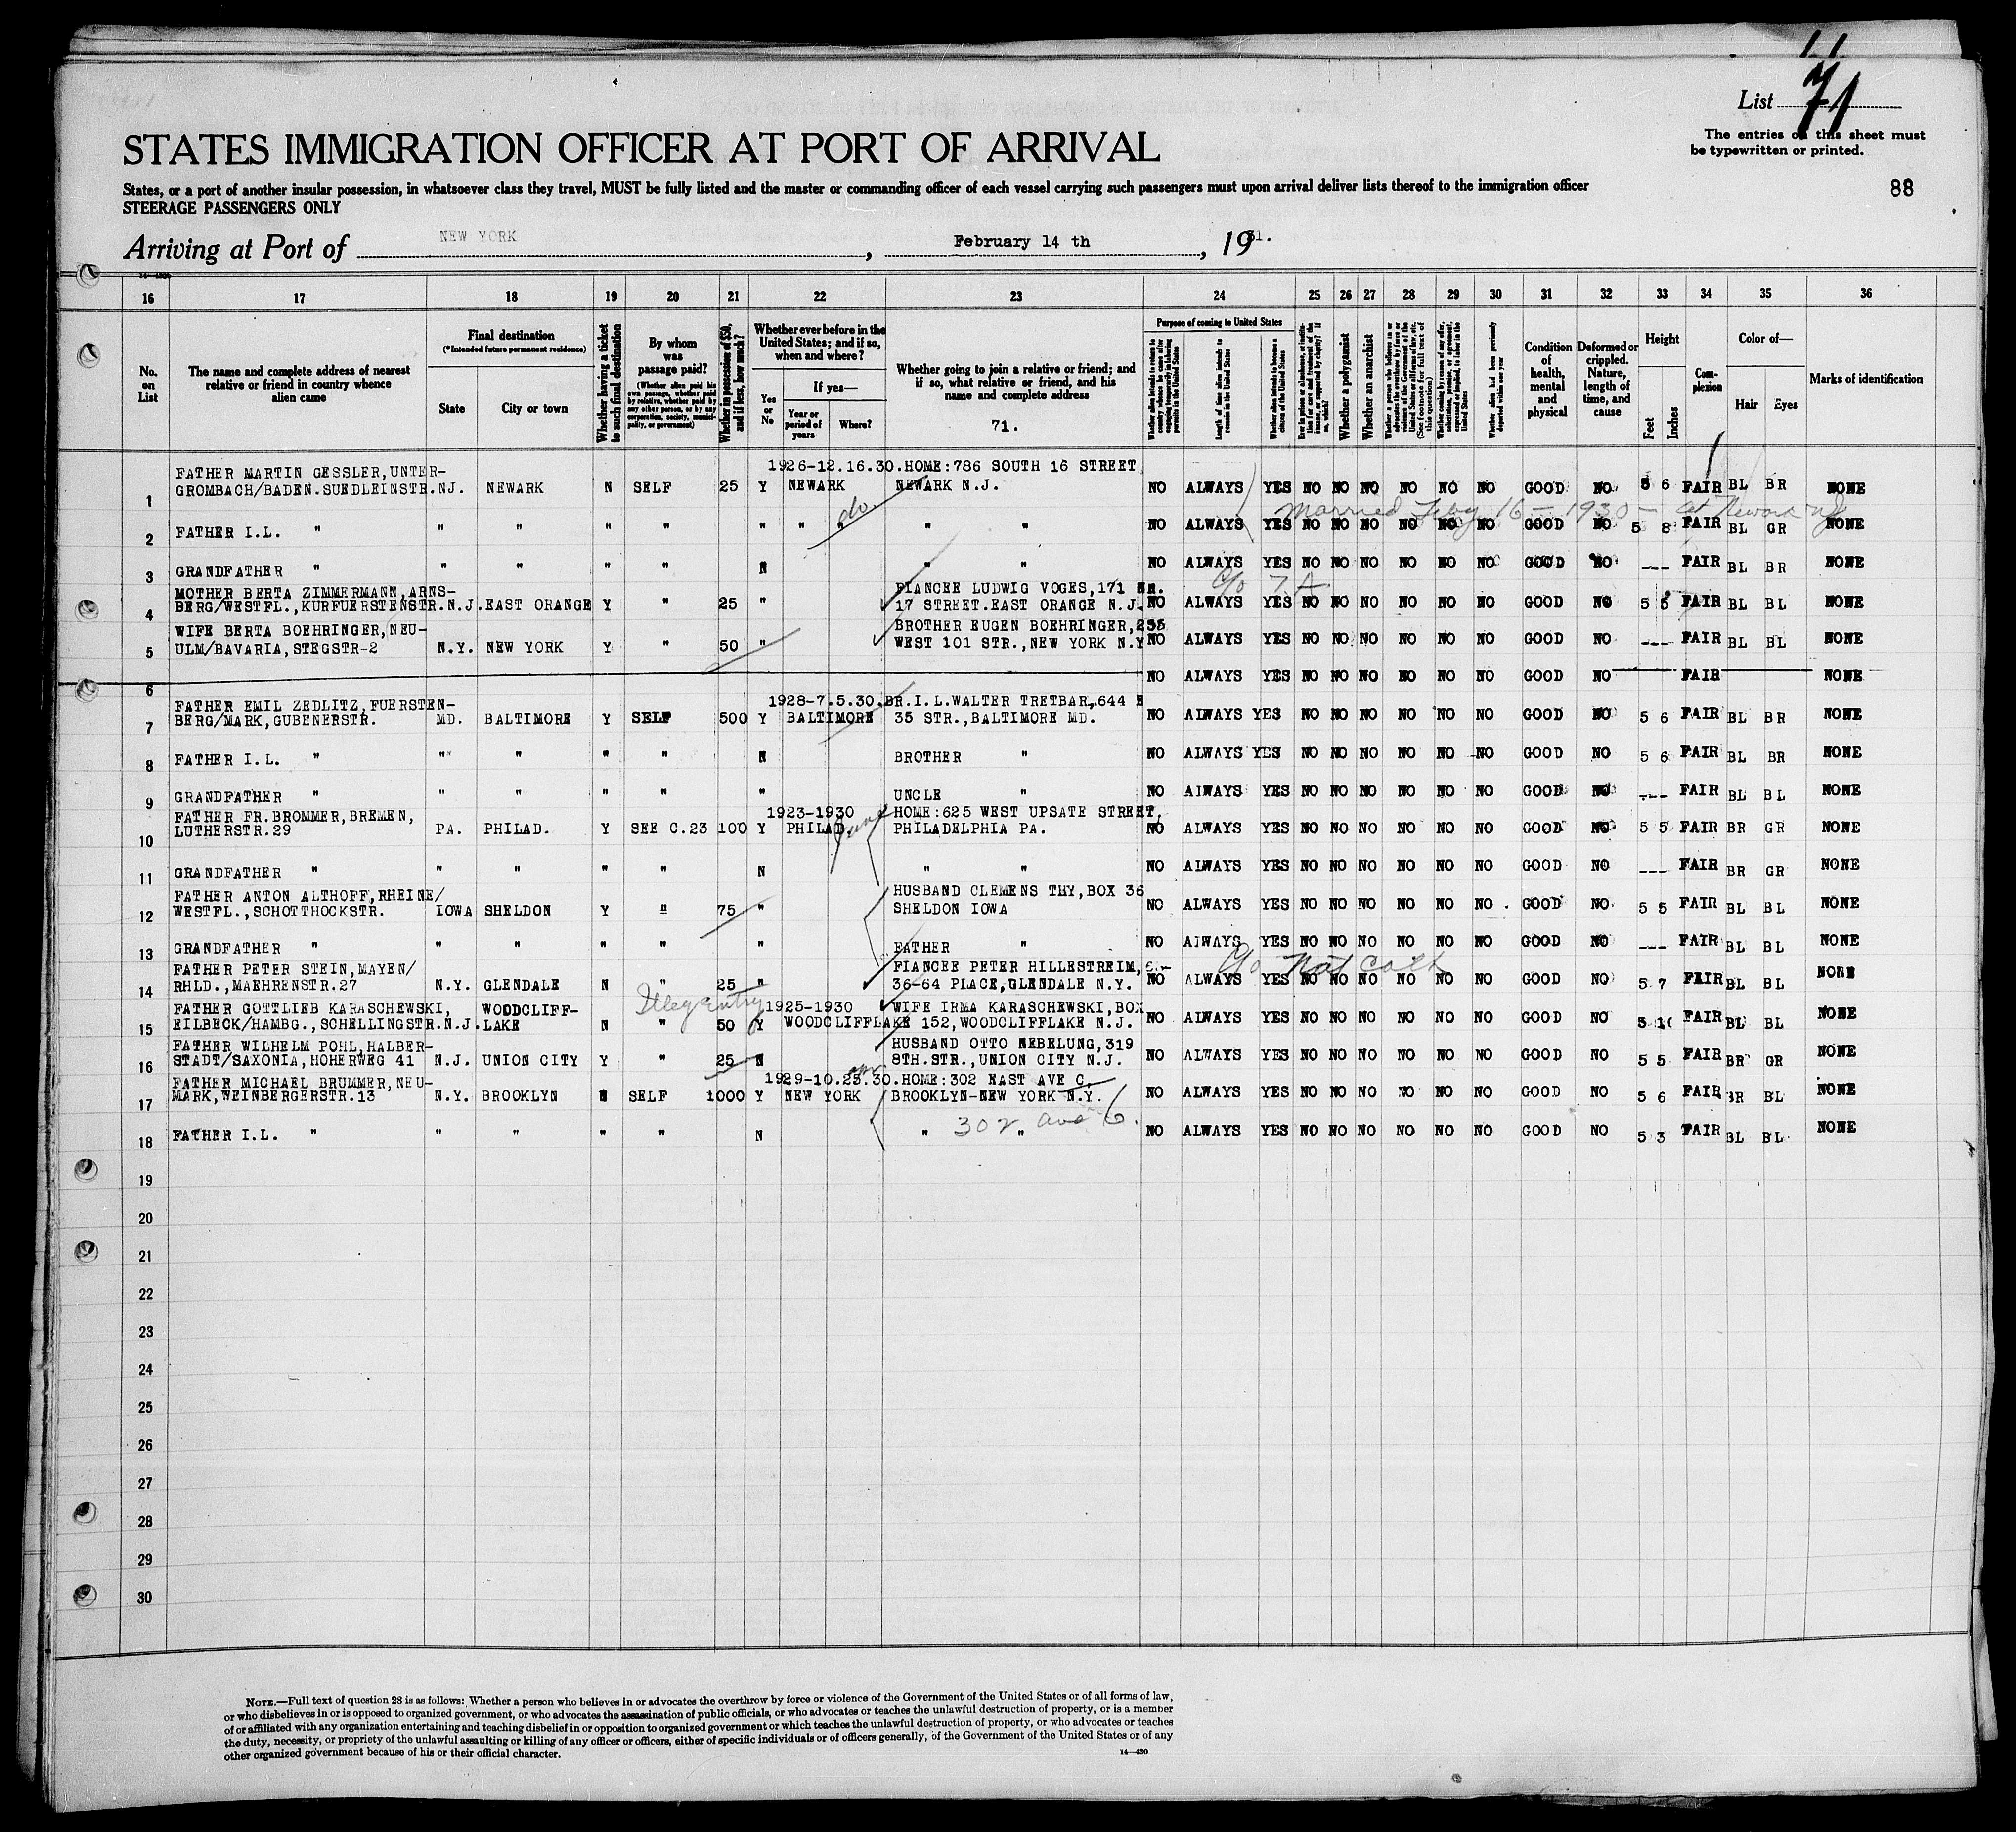 List 71
The entries on this sheet must
be typewritten or printed.
STATES IMMIGRATION OFFICER AT PORT OF ARRIVAL
States, or a port of another insular possession, in whatsoever class they travel, MUST be fully listed and the master or commanding officer of each vessel carrying such passengers must upon arrival deliver lists thereof to the immigration officer
88
STEERAGE PASSENGERS ONLY
Arriving at Port of NEW YORK, February 14 th, 1931.
16 17 18 19 20 21 22 23 24 25 26 27 28 29 30 31 32 33 34 35 36
No. on List
The name and complete address of nearest
relative or friend in country whence
alien came
Final destination
(*Intended future permanent residence)
State
City or town
Whether having a ticket
to such final destination
By whom
was
passage paid?
(Whether alien paid his
own passage, whether paid
by relative, whether paid by
any other person, or by any
corporation, society, munici-
pality, or government)
Whether in possession of $50,
and if less, how much?
Whether ever before in the
United States; and if so,
when and where?
Yes or No
If yes—
Year or
period of
years
Where?
Whether going to join a relative or friend; and
if so, what relative or friend, and his
name and complete address
71.
Purpose of coming to United States
Length of time alien intends to
remain in the United States
Whether alien intends to become a
citizen of the United States
Whether a polygamist
Whether an anarchist
Condition
of
health,
mental
and
physical
Deformed or
crippled.
Nature,
length of
time, and
cause
Height
Feet
Inches
Com-
plexion
Color of—
Hair
Eyes
Marks of identification
FATHER MARTIN GESSLER,UNTER- 1926-12.16.30.HOME:786 SOUTH 16 STREET
1 GROMBACH/BADEN.SUEDLEINSTR. NJ. NEWARK N SELF 25 Y NEWARK NEWARK N.J. NO ALWAYS YES NO NO NO NO NO NO GOOD NO 5 6 FAIR BL BR NONE
do. Married Feby 16 - 1930 - at Newark NJ
2 FATHER I.L. " " " " " " " " " " " NO ALWAYS YES NO NO NO NO NO NO GOOD NO 5 8 FAIR BL GR NONE
3 GRANDFATHER " " " " " N " " NO ALWAYS YES NO NO NO NO NO NO GOOD NO --- FAIR BL BR NONE
MOTHER BERTA ZIMMERMANN,ARNS- FIANCEE LUDWIG VOGES,171 NR.
4 BERG/WESTFL.,KURFUERSTENSTR. N.J. EAST ORANGE Y " 25 " 17 STREET.EAST ORANGE N.J. NO ALWAYS YES NO NO NO NO NO NO GOOD NO 5 5 FAIR BL BL NONE
WIFE BERTA BOEHRINGER,NEU- BROTHER EUGEN BOEHRINGER,235
5 ULM/BAVARIA,STEGSTR-2 N.Y. NEW YORK Y " 50 " WEST 101 STR.,NEW YORK N.Y. NO ALWAYS YES NO NO NO NO NO NO GOOD NO --- FAIR BL BL NONE
6 NO ALWAYS YES NO NO NO NO NO NO GOOD NO FAIR NONE
FATHER EMIL ZEDLITZ,FUERSTEN- 1928-7.5.30.BR.I.L.WALTER TRETBAR,644 E
7 BERG/MARK,GUBENERSTR. MD. BALTIMORE Y SELF 500 Y BALTIMORE 35 STR.,BALTIMORE MD. NO ALWAYS YES NO NO NO NO NO NO GOOD NO 5 6 FAIR BL BR NONE
8 FATHER I.L. " " " " " N BROTHER " NO ALWAYS YES NO NO NO NO NO NO GOOD NO 5 6 FAIR BL BR NONE
9 GRANDFATHER " " " " " " UNCLE " NO ALWAYS YES NO NO NO NO NO NO GOOD NO --- FAIR BL BL NONE
FATHER FR.BROMMER,BREMEN, 1923-1930 HOME:625 WEST UPSATE STREET,
10 LUTHERSTR.29 PA. PHILAD. Y SEE C.23 100 Y PHILAD. June PHILADELPHIA PA. NO ALWAYS YES NO NO NO NO NO NO GOOD NO 5 5 FAIR BR GR NONE
11 GRANDFATHER " " " " " N " " NO ALWAYS YES NO NO NO NO NO NO GOOD NO --- FAIR BR GR NONE
FATHER ANTON ALTHOFF,RHEINE/ HUSBAND CLEMENS THY,BOX 36
12 WESTFL.,SCHOTTHOCKSTR. IOWA SHELDON Y " 75 " SHELDON IOWA NO ALWAYS YES NO NO NO NO NO NO GOOD NO 5 5 FAIR BL BL NONE
13 GRANDFATHER " " " " " " FATHER " NO ALWAYS YES NO NO NO NO NO NO GOOD NO --- FAIR BL BL NONE
FATHER PETER STEIN,MAYEN/ FIANCEE PETER HILLESTREIM,
14 RHLD.,MAEHRENSTR.27 N.Y. GLENDALE N " 25 " 36-64 PLACE,GLENDALE N.Y. NO ALWAYS YES NO NO NO NO NO NO GOOD NO 5 7 FAIR BL BL NONE
FATHER GOTTLIEB KARASCHEWSKI, WOODCLIFF- Illeg entry 1925-1930 WIFE IRMA KARASCHEWSKI,BOX
15 EILBECK/HAMBG.,SCHELLINGSTR. N.J. LAKE N " 50 Y WOODCLIFFLAKE 152,WOODCLIFFLAKE N.J. NO ALWAYS YES NO NO NO NO NO NO GOOD NO 5 10 FAIR BL BL NONE
FATHER WILHELM POHL,HALBER- HUSBAND OTTO NEBELUNG,319
16 STADT/SAXONIA,HOHERWEG 41 N.J. UNION CITY Y " 25 N 8TH.STR.,UNION CITY N.J. NO ALWAYS YES NO NO NO NO NO NO GOOD NO 5 5 FAIR BR GR NONE
FATHER MICHAEL BRUMMER,NEU- 1929-10.23.30.HOME:302 EAST AVE C.
17 MARK,WEINBERGERSTR.13 N.Y. BROOKLYN N SELF 1000 Y NEW YORK BROOKLYN-NEW YORK N.Y. NO ALWAYS YES NO NO NO NO NO NO GOOD NO 5 6 FAIR BR BL NONE
302 Ave C.
18 FATHER I.L. " " " " " N " " NO ALWAYS YES NO NO NO NO NO NO GOOD NO 5 3 FAIR BL BL NONE
19
20
21
22
23
24
25
26
27
28
29
30
NOTE.—Full text of question 28 is as follows: Whether a person who believes in or advocates the overthrow by force or violence of the Government of the United States or of all forms of law,
or who disbelieves in or is opposed to organized government, or who advocates the assassination of public officials, or who advocates or teaches the unlawful destruction of property, or is a member
of or affiliated with any organization entertaining and teaching disbelief in or opposition to organized government or which teaches the unlawful destruction of property, or who advocates or teaches
the duty, necessity, or propriety of the unlawful assaulting or killing of any officer or officers, either of specific individuals or of officers generally, of the Government of the United States or of any
other organized government because of his or their official character.
14—430